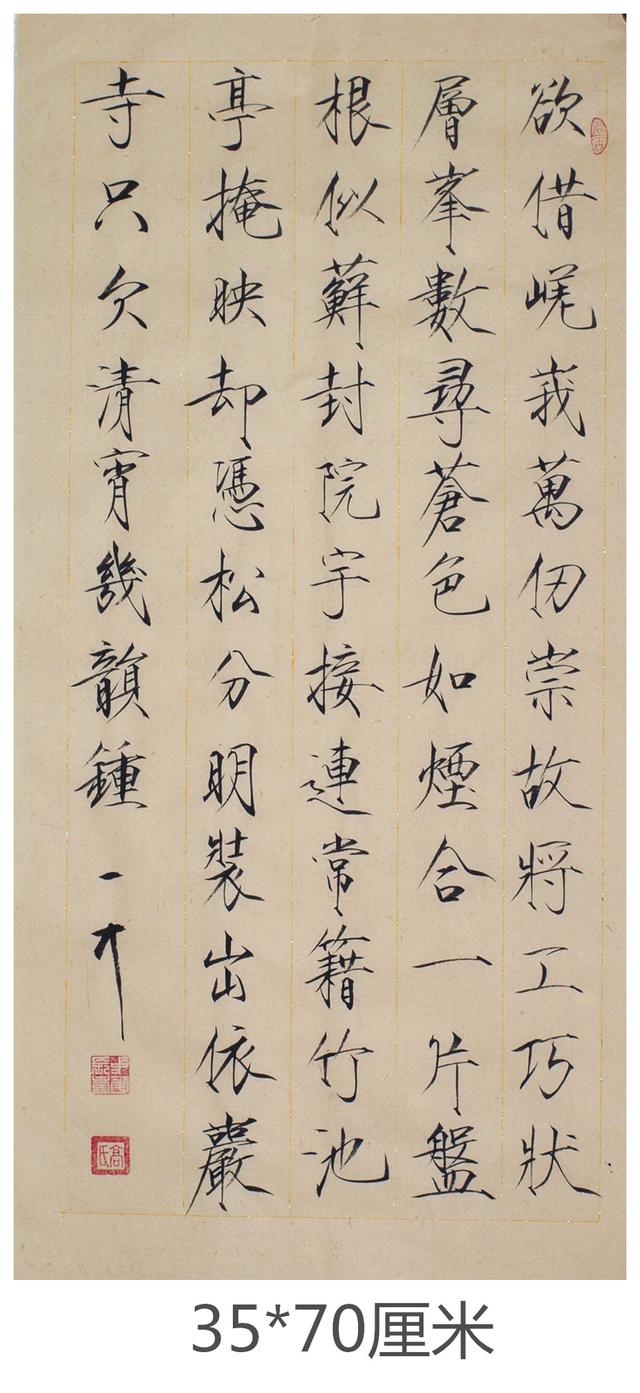 欲借嵯峩萬仞崇故將工巧狀
層峯數尋蒼色如煙合一片盤
根似蘚封院宇接連常籍竹池
亭掩映却憑松分明裝出依巖
寺只欠清宵幾韻鍾
一才
高氏
35*70厘米